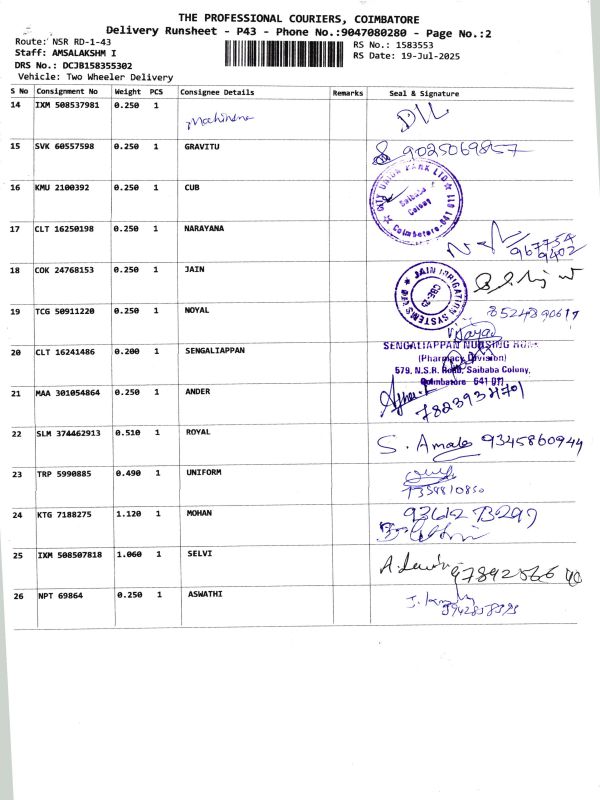 THE PROFESSIONAL COURIERS, COIMBATORE
Delivery Runsheet - P43 - Phone No.:9047080280 - Page No.:2
Route: NSR RD-1-43
RS No.: 1583553
Staff: AMSALAKSHM I
RS Date: 19-Jul-2025
DRS No.: DCJB158355302
Vehicle: Two Wheeler Delivery
S No Consignment No Weight PCS Consignee Details Remarks Seal & Signature
14 IXM 508537981 0.250 1
15 SVK 60557598 0.250 1 GRAVITU 9025069857
16 KMU 2100392 0.250 1 CUB
UNION BANK LTD
Saibaba
Colony
Coimbatore-641 011
17 CLT 16250198 0.250 1 NARAYANA
967754
9402
18 COK 24768153 0.250 1 JAIN
JAIN IRRIGATION SYSTEMS
CBE-23
19 TCG 50911220 0.250 1 NOYAL 8524890617
20 CLT 16241486 0.200 1 SENGALIAPPAN
SENGALIAPPAN NURSING HOME
(Pharmacy Division)
579, N.S.R. Road, Saibaba Colony,
Coimbatore 641 011
21 MAA 301054864 0.250 1 ANDER
22 SLM 374462913 0.510 1 ROYAL S. Amala 9345860944
23 TRP 5990885 0.490 1 UNIFORM
24 KTG 7188275 1.120 1 MOHAN
25 IXM 508507818 1.060 1 SELVI
26 NPT 69864 0.250 1 ASWATHI